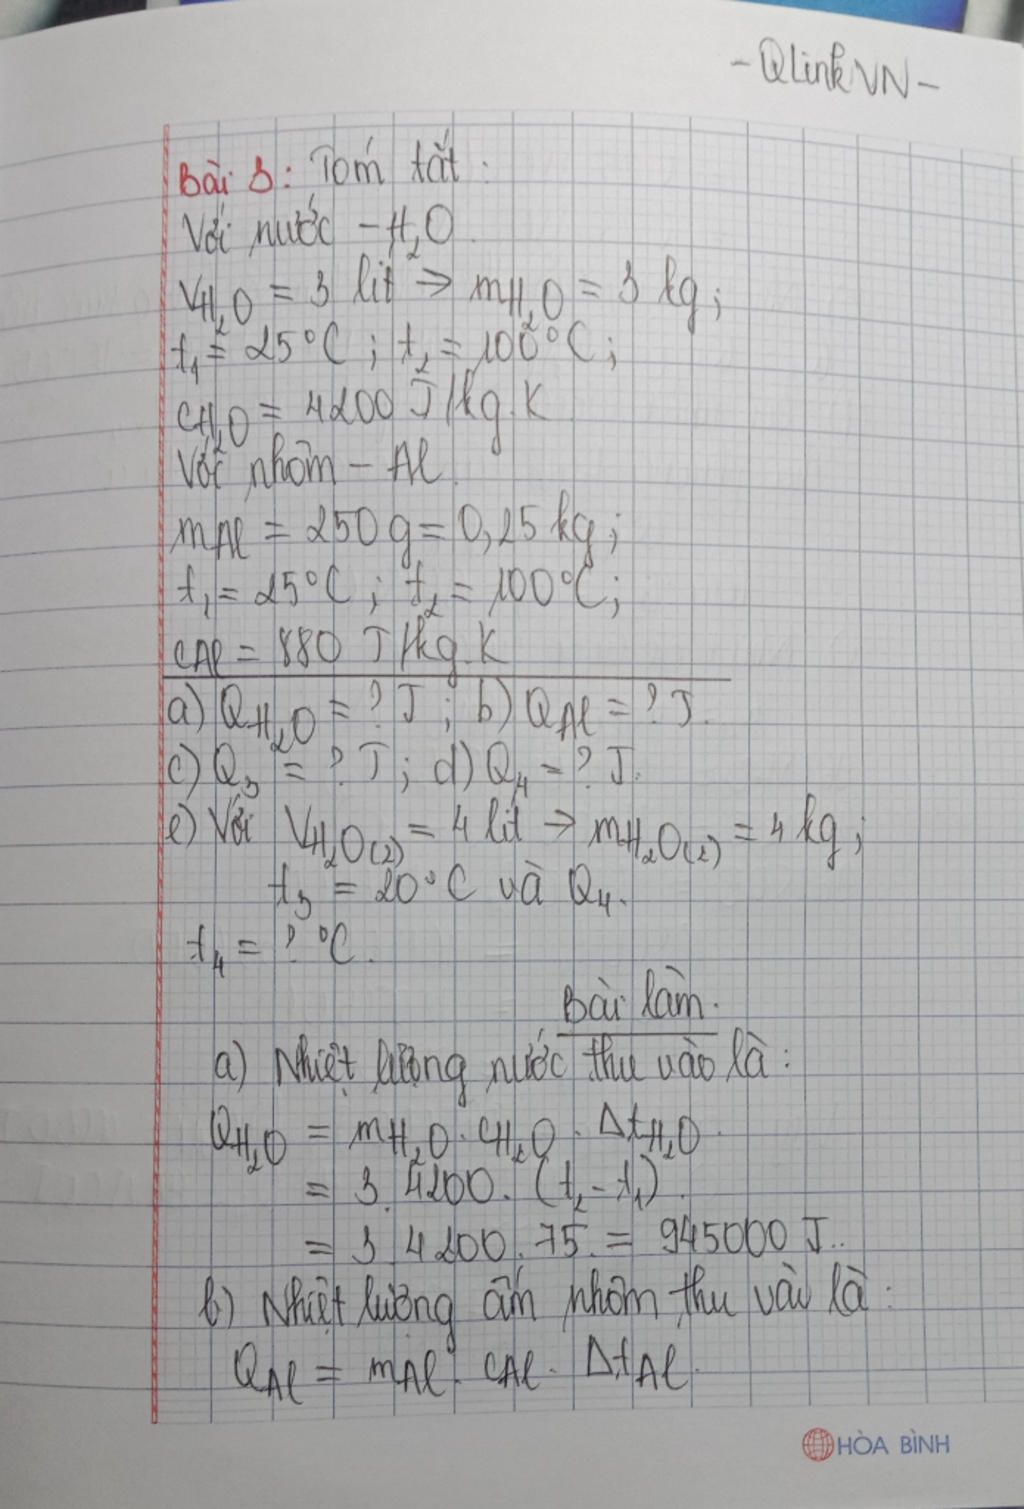 - QLinkVN -
Bài 3: Tóm tắt:
Với nước - H₂O
V_H₂O = 3 lít → m_H₂O = 3 kg;
t₁ = 25°C; t₂ = 100°C;
c_H₂O = 4200 J/kg.K
Với nhôm - Al
m_Al = 250g = 0,25 kg;
t₁ = 25°C; t₂ = 100°C;
c_Al = 880 J/kg.K
a) Q_H₂O = ? J; b) Q_Al = ? J.
c) Q₃ = ? J; d) Q₄ = ? J.
e) Với V_H₂O(2) = 4 lít → m_H₂O(2) = 4 kg;
t₃ = 20°C và Q₄.
t₄ = ? °C.
Bài làm.
a) Nhiệt lượng nước thu vào là:
Q_H₂O = m_H₂O . c_H₂O . Δt_H₂O.
= 3.4200.(t₂ - t₁).
= 3.4200.75 = 945000 J.
b) Nhiệt lượng ấm nhôm thu vài là:
Q_Al = m_Al . c_Al . Δt_Al.
HÒA BÌNH